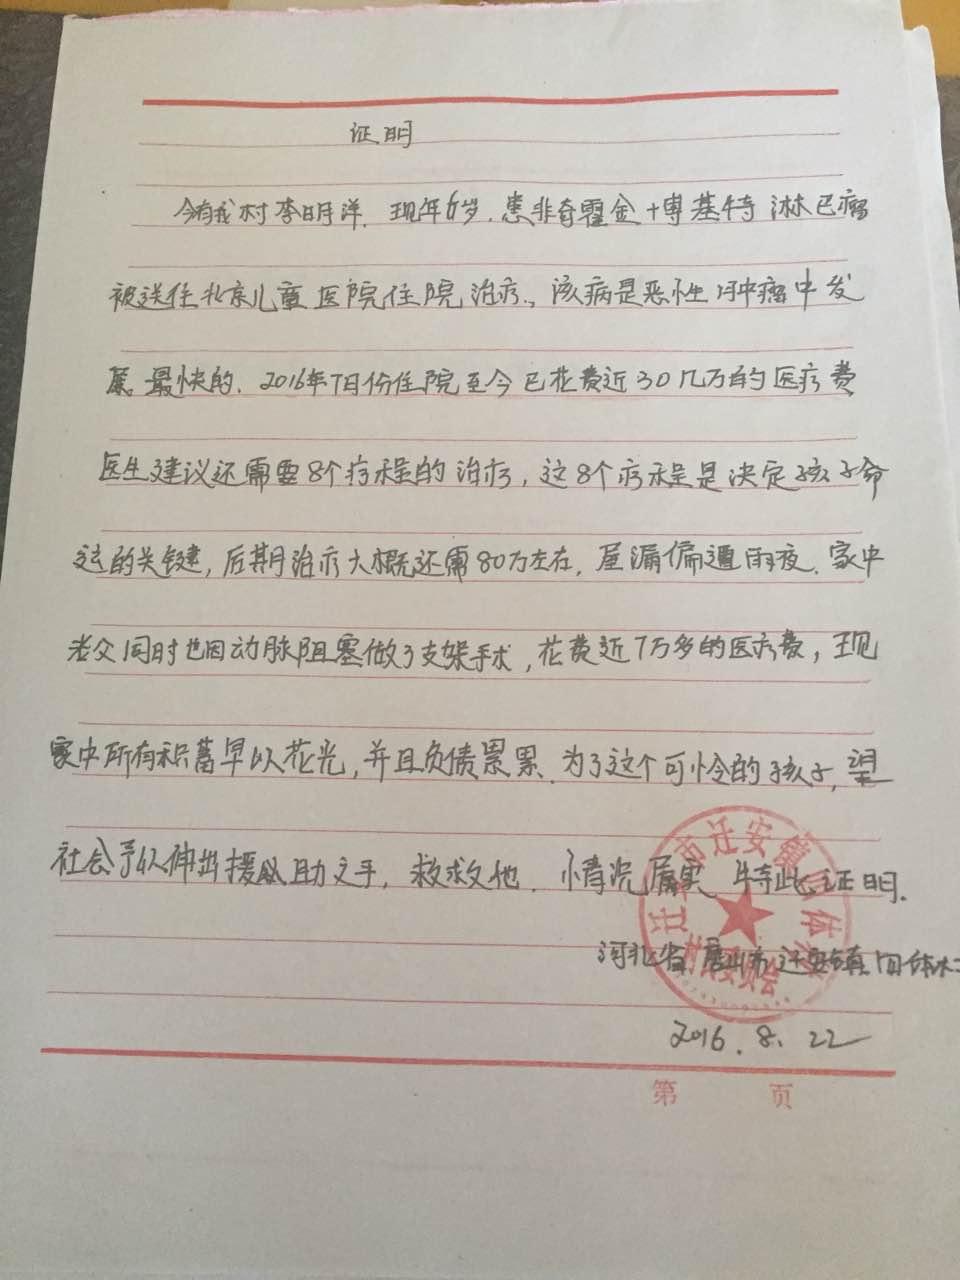 证明
今有我村李明洋.现年6岁.患非奇霍金+博基特淋巴瘤
被送往北京儿童医院住院治疗.,该病是恶性肿瘤中发
展最快的.2016年7月份住院至今已花费近30几万的医疗费
医生建议还需要8个疗程的治疗,这8个疗程是决定孩子命
运的关键,后期治疗大概还需80万左右,屋漏偏遭雨夜.家中
老父同时也因动脉阻塞做了支架手术,花费近7万多的医疗费,现
家中所有积蓄早以花光,并且负债累累.为了这个可怜的孩子,望
社会予以伸出援以助之手,救救他.情况属实 特此证明.
迁安市迁安镇 体村
村民委员会
河北省唐山市迁安镇 体村
2016.8.22
第 页